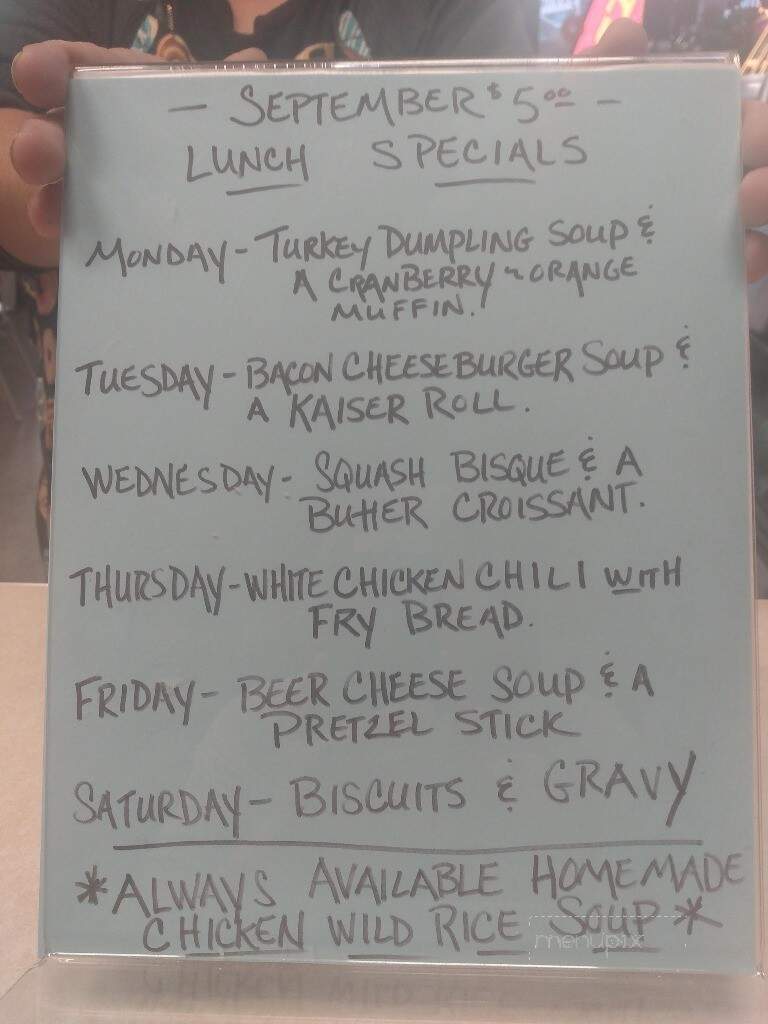 - SEPTEMBER $5.00 -
LUNCH SPECIALS
MONDAY - TURKEY DUMPLING SOUP &
A CRANBERRY ~ ORANGE
MUFFIN.
TUESDAY - BACON CHEESEBURGER SOUP &
A KAISER ROLL.
WEDNESDAY - SQUASH BISQUE & A
BUTTER CROISSANT.
THURSDAY - WHITE CHICKEN CHILI WITH
FRY BREAD.
FRIDAY - BEER CHEESE SOUP & A
PRETZEL STICK
SATURDAY - BISCUITS & GRAVY
*ALWAYS AVAILABLE HOMEMADE
CHICKEN WILD RICE SOUP*
menupix